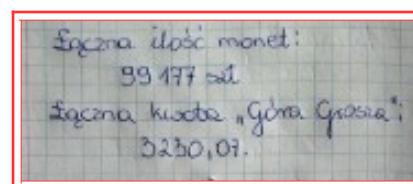 Łączna ilość monet:
99 177 szt
Łączna kwota „Góra Grosza":
3230,07.